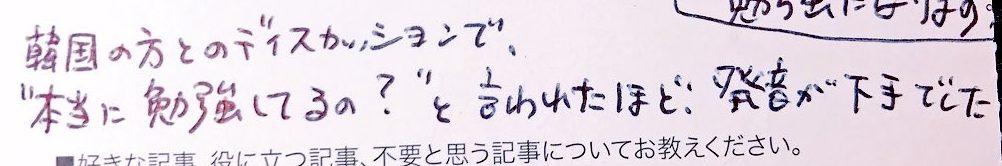 勉強になります。
韓国の方とのディスカッションで、
"本当に勉強してるの?"と言われたほど、発音が下手でした
■好きな記事、役に立つ記事、不要と思う記事についてお教えください。